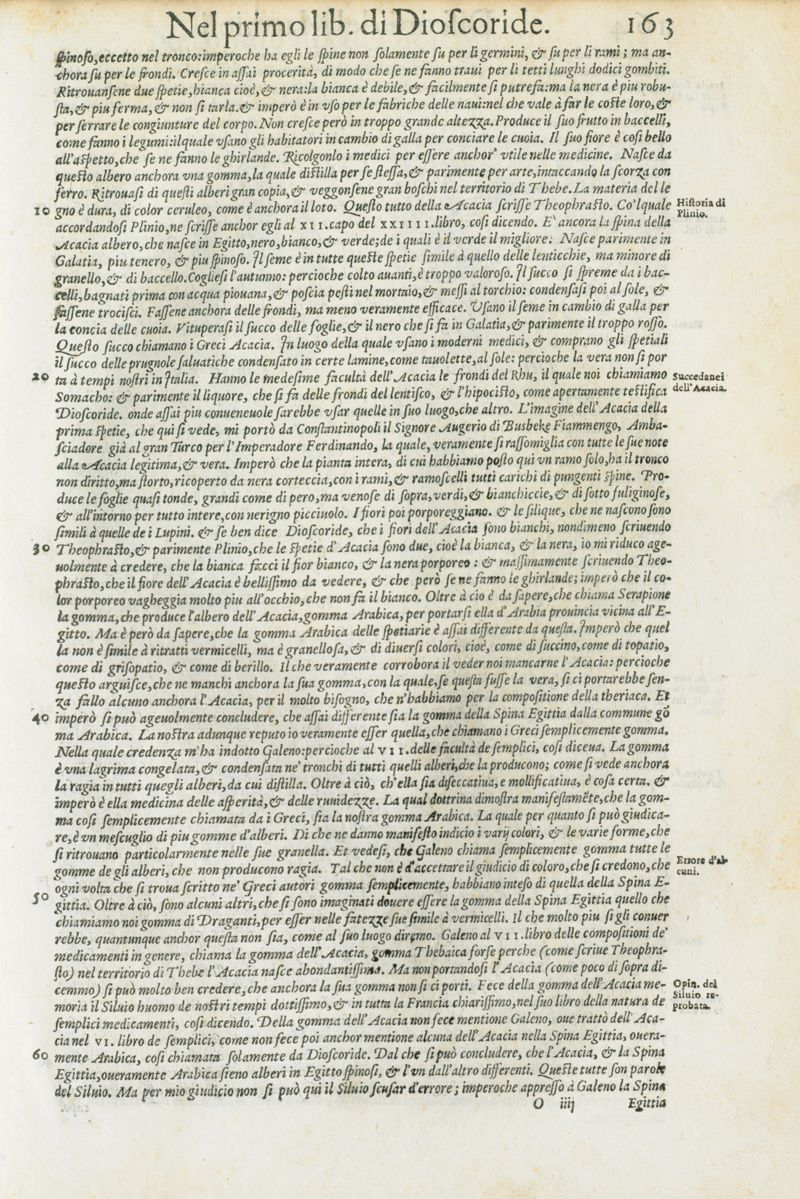 Nel primo lib. di Dioſcoride. 163
ſpinoſo, eccetto nel tronco: imperoche ha egli le ſpine non ſolamente ſu per li germini, & ſu per li rami; ma an-
chora ſu per le frondi. Creſce in aſſai procerità, di modo che ſe ne fanno traui per li tetti lunghi dodici gombiti.
Ritrouanſene due ſpetie, bianca cioè, & nera: la bianca è debile, & facilmente ſi putrefa: ma la nera è piu robu-
ſta, & piu ferma, & non ſi tarla. & imperò è in vſo per le fabriche delle naui: nel che vale à far le coſte loro, &
per ferrare le congiunture del corpo. Non creſce però in troppo grande altezza. Produce il ſuo frutto in baccelli,
come fanno i legumi: ilquale vſano gli habitatori in cambio di galla per conciare le cuoia. Il ſuo fiore è coſi bello
all'aſpetto, che ſe ne fanno le ghirlande. Ricolgonlo i medici per eſſere anchor' vtile nelle medicine. Naſce da
queſto albero anchora vna gomma, la quale diſtilla per ſe ſteſſa, & parimente per arte, intaccando la ſcorza con
ferro. Ritrouaſi di queſti alberi gran copia, & veggonſene gran boſchi nel territorio di Thebe. La materia del le
10 gno è dura, di color ceruleo, come è anchora il loto. Queſto tutto della Acacia ſcriſſe Theophraſto. Co'l quale
Hiſtoria di
Plinio.
accordandoſi Plinio, ne ſcriſſe anchor egli al XII. capo del XXIIII. libro, coſi dicendo. E' ancora la ſpina della
Acacia albero, che naſce in Egitto, nero, bianco, & verde; de i quali è il verde il migliore. Naſce parimente in
Galatia, piu tenero, & piu ſpinoſo. Il ſeme è in tutte queſte ſpetie ſimile à quello delle lenticchie, ma minore di
granello, & di baccello. Coglieſi l'autumno: percioche colto auanti, è troppo valoroſo. Il ſucco ſi ſpreme da i bac-
celli, bagnati prima con acqua piouana, & poſcia peſti nel mortaio, & meſſi al torchio: condenſaſi poi al ſole, &
faſſene trociſci. Faſſene anchora delle frondi, ma meno veramente efficace. Vſano il ſeme in cambio di galla per
la concia delle cuoia. Vituperaſi il ſucco delle foglie, & il nero che ſi fa in Galatia, & parimente il troppo roſſo.
Queſto ſucco chiamano i Greci Acacia. In luogo della quale vſano i moderni medici, & comprano gli ſpetiali
il ſucco delle prugnole ſaluatiche condenſato in certe lamine, come tauolette, al ſole: percioche la vera non ſi por
20 ta à tempi noſtri in Italia. Hanno le medeſime facultà dell'Acacia le frondi del Rhu, il quale noi chiamiamo
Succedanei
dell'Acacia.
Somacho: & parimente il liquore, che ſi fa delle frondi del lentiſco, & l'hipociſto, come apertamente teſtifica
Dioſcoride. onde aſſai piu conueneuole ſarebbe vſar quelle in ſuo luogo, che altro. L'imagine dell'Acacia della
prima ſpetie, che qui ſi vede, mi portò da Conſtantinopoli il Signore Augerio di Busbeke Fiammengo, Amba-
ſciadore già al gran Turco per l'Imperadore Ferdinando, la quale, veramente ſi raſſomiglia con tutte le ſue note
alla Acacia legitima, & vera. Imperò che la pianta intera, di cui habbiamo poſto qui vn ramo ſolo, ha il tronco
non diritto, ma ſtorto, ricoperto da nera corteccia, con i rami, & ramoſcelli tutti carichi di pungenti ſpine. Pro-
duce le foglie quaſi tonde, grandi come di pero, ma venoſe di ſopra, verdi, & bianchiccie, & di ſotto fuliginoſe,
& all'intorno per tutto intere, con nerigno picciuolo. I fiori poi porporeggiano. & le ſilique, che ne naſcono ſono
ſimili à quelle de i Lupini. & ſe ben dice Dioſcoride, che i fiori dell'Acacia ſono bianchi, nondimeno ſcriuendo
30 Theophraſto, & parimente Plinio, che le ſpetie d'Acacia ſono due, cioè la bianca, & la nera, io mi riduco age-
uolmente à credere, che la bianca facci il fior bianco, & la nera porporeo: & maſſimamente ſcriuendo Theo-
phraſto, che il fiore dell'Acacia è belliſſimo da vedere, & che però ſe ne fanno le ghirlande; imperò che il co-
lor porporeo vagheggia molto piu all'occhio, che non fa il bianco. Oltre à cio è da ſapere, che chiama Serapione
la gomma, che produce l'albero dell'Acacia, gomma Arabica, per portarſi ella d'Arabia prouincia vicina all'E-
gitto. Ma è però da ſapere, che la gomma Arabica delle ſpetiarie è aſſai differente da queſta. Imperò che quel
la non è ſimile à ritratti vermicelli, ma è granelloſa, & di diuerſi colori, cioè, come di ſuccino, come di topatio,
come di griſopatio, & come di berillo. Il che veramente corrobora il veder noi mancarne l'Acacia: percioche
queſto arguiſce, che ne manchi anchora la ſua gomma, con la quale, ſe queſta fuſſe la vera, ſi ci portarebbe ſen-
za fallo alcuno anchora l'Acacia, per il molto biſogno, che n'habbiamo per la compoſitione della theriaca. Et
40 imperò ſi può ageuolmente concludere, che aſſai differente ſia la gomma della Spina Egittia dalla commune gō
ma Arabica. La noſtra adunque reputo io veramente eſſer quella, che chiamano i Greci ſemplicemente gomma.
Nella quale credenza m'ha indotto Galeno: percioche al VII. delle facultà de ſemplici, coſi diceua. La gomma
è vna lagrima congelata, & condenſata ne' tronchi di tutti quelli alberi, che la producono; come ſi vede anchora
la ragia in tutti quegli alberi, da cui diſtilla. Oltre à ciò, ch'ella ſia diſeccatiua, e mollificatiua, è coſa certa. &
imperò è ella medicina delle aſperità, & delle ruuidezze. La qual dottrina dimoſtra manifeſtamēte, che la gom-
ma coſi ſemplicemente chiamata da i Greci, ſia la noſtra gomma Arabica. La quale per quanto ſi può giudica-
re, è vn meſcuglio di piu gomme d'alberi. Di che ne danno manifeſto indicio i varij colori, & le varie forme, che
ſi ritrouano particolarmente nelle ſue granella. Et vedeſi, che Galeno chiama ſemplicemente gomma tutte le
gomme de gli alberi, che non producono ragia. Tal che non è d'accettare il giudicio di coloro, che ſi credono, che
Errore d'al
cuni.
50 ogni volta che ſi troua ſcritto ne' Greci autori gomma ſemplicemente, habbiano inteſo di quella della Spina E-
gittia. Oltre à ciò, ſono alcuni altri, che ſi ſono imaginati douere eſſere la gomma della Spina Egittia quello che
chiamiamo noi gomma di Draganti, per eſſer nelle fatezze ſue ſimile à vermicelli. Il che molto piu ſi gli conuer
rebbe, quantunque anchor queſta non ſia, come al ſuo luogo diremo. Galeno al VII. libro delle compoſitioni de'
medicamenti in genere, chiama la gomma dell'Acacia, gomma Thebaica forſe perche (come ſcriue Theophra-
ſto) nel territorio di Thebe l'Acacia naſce abondantiſſima. Ma non portandoſi l'Acacia (come poco di ſopra di-
cemmo) ſi può molto ben credere, che anchora la ſua gomma non ſi ci porti. Fece della gomma dell'Acacia me-
Opin. del
Siluio re-
probata.
moria il Siluio huomo de noſtri tempi dottiſſimo, & in tutta la Francia chiariſſimo, nel ſuo libro della natura de
ſemplici medicamenti, coſi dicendo. Della gomma dell'Acacia non fece mentione Galeno, oue trattò dell'Aca-
cia nel VI. libro de ſemplici, come non fece poi anchor mentione alcuna dell'Acacia nella Spina Egittia, ouera-
60 mente Arabica, coſi chiamata ſolamente da Dioſcoride. Dal che ſi può concludere, che l'Acacia, & la Spina
Egittia, oueramente Arabica ſieno alberi in Egitto ſpinoſi, & l'vn dall'altro differenti. Queſte tutte ſon parole
del Siluio. Ma per mio giudicio non ſi può qui il Siluio ſcuſar d'errore; imperoche appreſſo à Galeno la Spina
O iiij Egittia